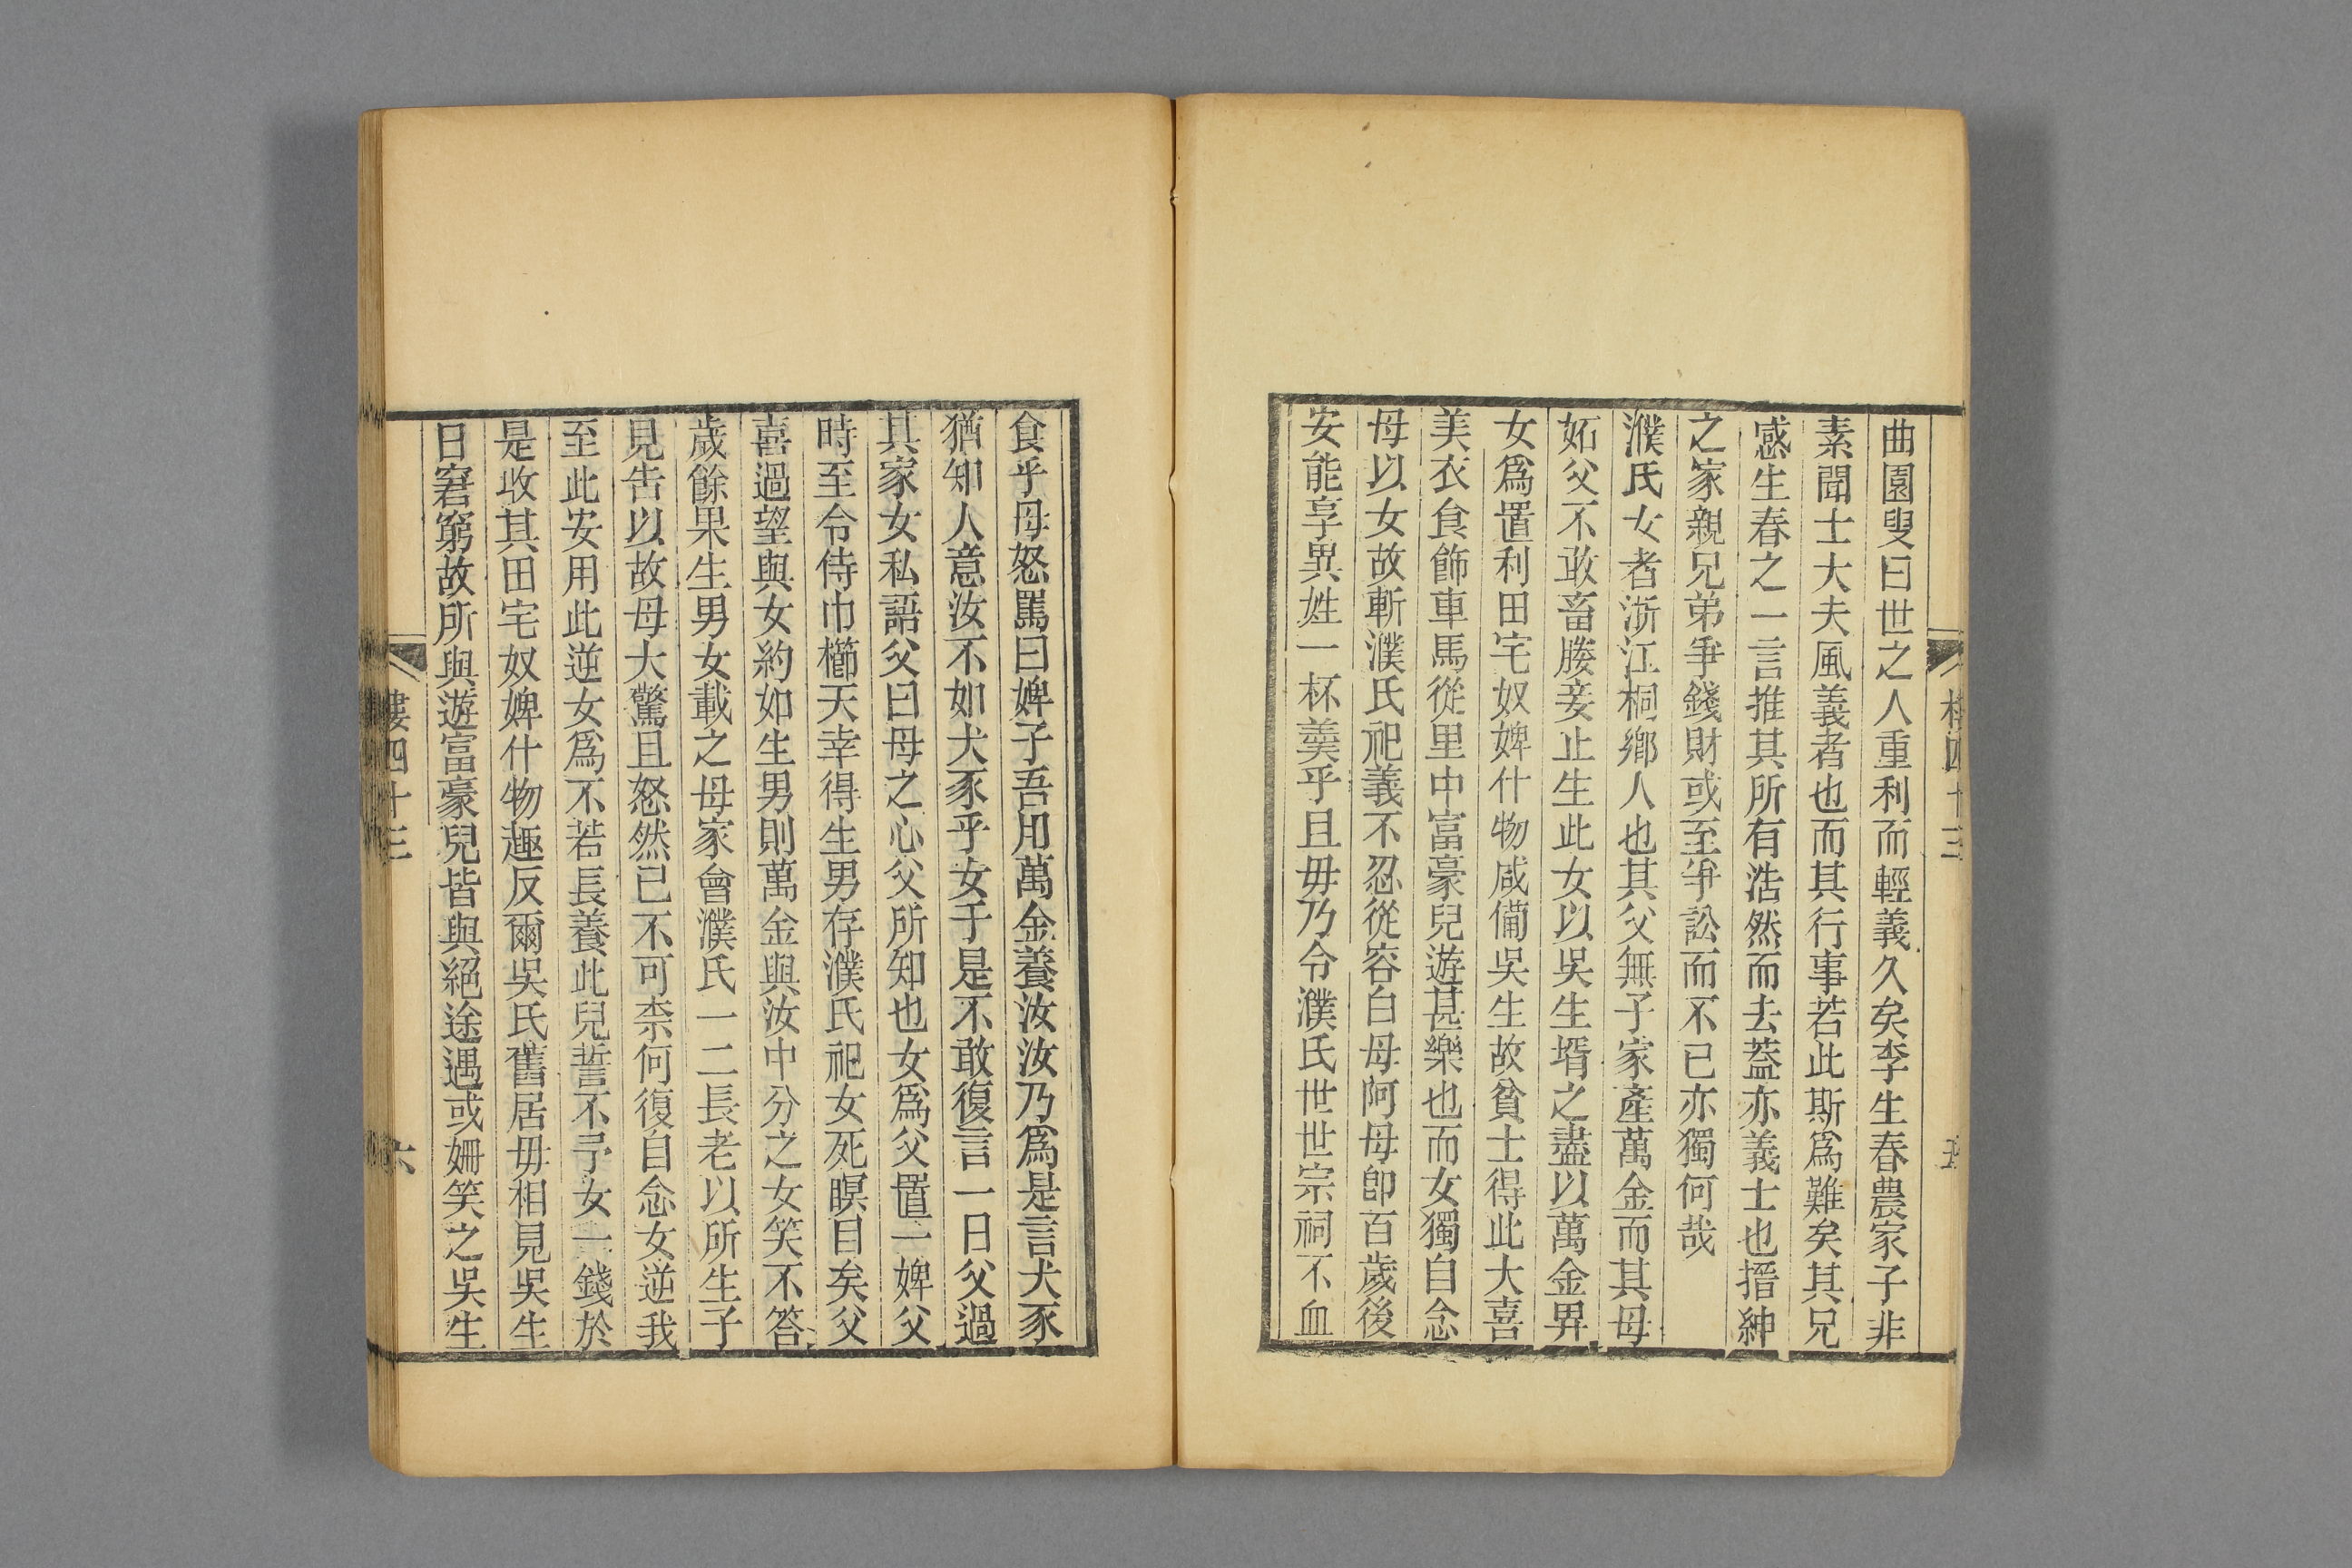 曲園叟曰世之人重利而輕義久矣李生春農家子非
素聞士大夫風義者也而其行事若此斯爲難矣其兄
感生春之一言推其所有浩然而去葢亦義士也搢紳
之家親兄弟爭錢財或至爭訟而不已亦獨何哉
濮氏女者浙江桐鄉人也其父無子家產萬金而其母
妬父不敢畜媵妾止生此女以吳生壻之盡以萬金畀
女爲置利田宅奴婢什物咸備吳生故貧士得此大喜
美衣食飾車馬從里中富豪兒遊甚樂也而女獨自念
母以女故斬濮氏祀義不忍從容白母阿母卽百歲後
安能享異姓一杯羹乎且毋乃令濮氏世世宗祠不血
四十三
食乎母怒罵曰婢子吾用萬金養汝汝乃爲是言犬豕
猶知人意汝不如犬豕乎女于是不敢復言一日父過
其家女私語父曰母之心父所知也女爲父置一婢父
時至令侍巾櫛天幸得生男存濮氏祀女死瞑目矣父
喜過望與女約如生男則萬金與汝中分之女笑不答
歲餘果生男女載之母家會濮氏一二長老以所生子
見告以故母大驚且怒然已不可柰何復自念女逆我
至此安用此逆女爲不若長養此兒誓不予女一錢於
是收其田宅奴婢什物趣反爾吳氏舊居毋相見吳生
日窘窮故所與遊富豪兒皆與絕途遇或姍笑之吳生
樓四十三
六